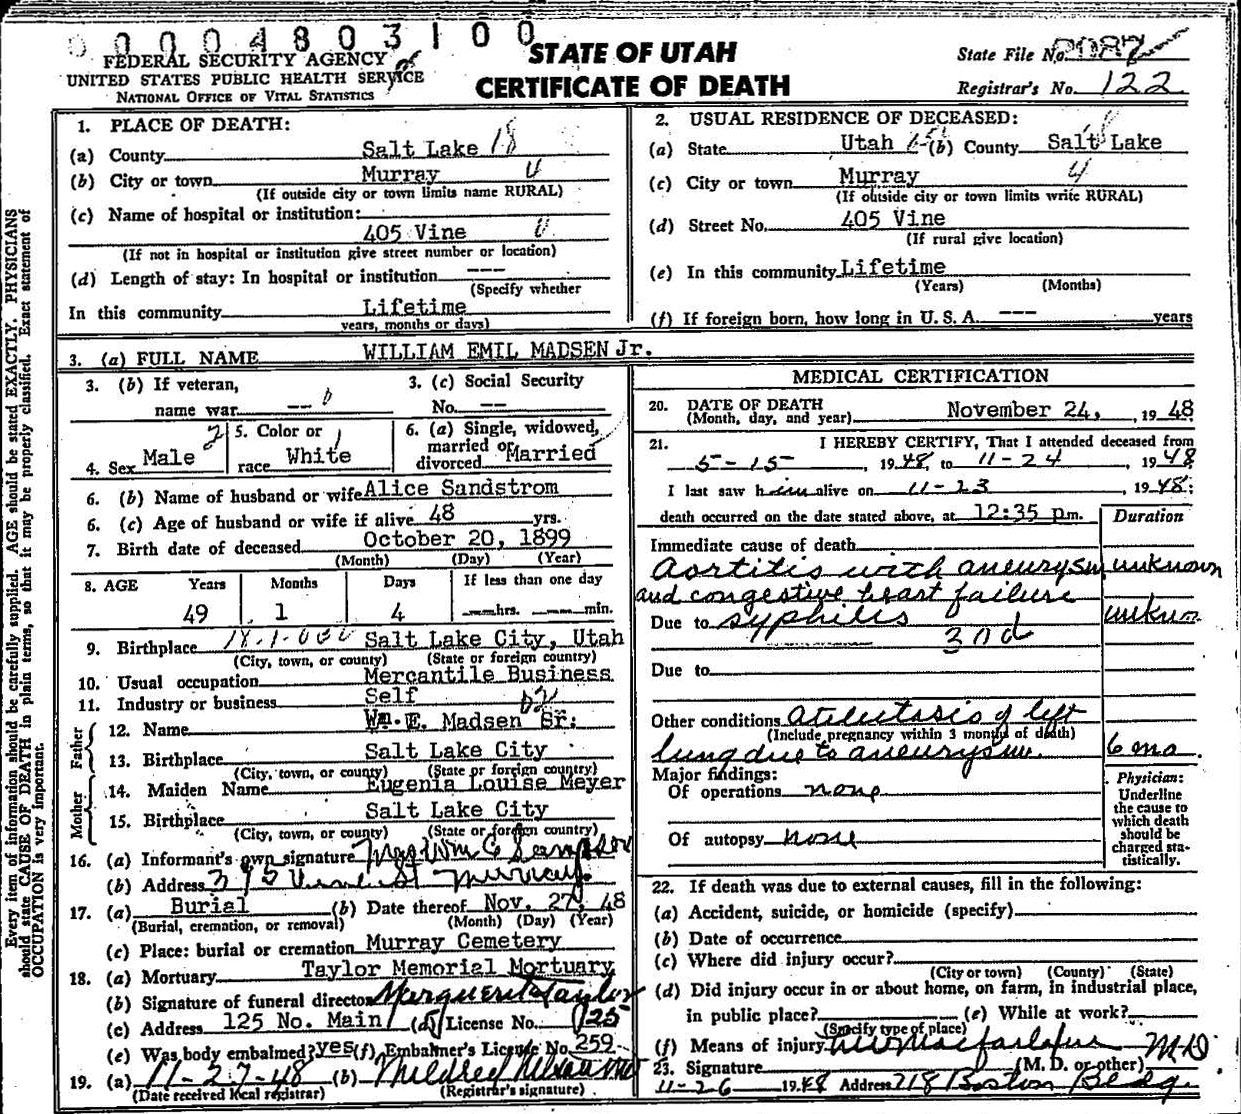 0 0 0 0 4 8 0 3 1 0 0
FEDERAL SECURITY AGENCY
UNITED STATES PUBLIC HEALTH SERVICE
NATIONAL OFFICE OF VITAL STATISTICS
STATE OF UTAH
CERTIFICATE OF DEATH
State File No. 2087
Registrar's No. 122
Every item of information should be carefully supplied. AGE should be stated EXACTLY. PHYSICIANS
should state CAUSE OF DEATH in plain terms, so that it may be properly classified. Exact statement of
OCCUPATION is very important.
1. PLACE OF DEATH:
(a) County Salt Lake 18
(b) City or town Murray 4
(If outside city or town limits name RURAL)
(c) Name of hospital or institution:
405 Vine
(If not in hospital or institution give street number or location)
(d) Length of stay: In hospital or institution ---
(Specify whether
In this community Lifetime
years, months or days)
2. USUAL RESIDENCE OF DECEASED:
(a) State Utah (b) County Salt Lake
(c) City or town Murray 4
(If outside city or town limits write RURAL)
(d) Street No. 405 Vine
(If rural give location)
(e) In this community Lifetime
(Years) (Months)
(f) If foreign born, how long in U. S. A. --- years
3. (a) FULL NAME WILLIAM EMIL MADSEN Jr.
3. (b) If veteran,
name war --
3. (c) Social Security
No. --
4. Sex Male 2
5. Color or
race White 1
6. (a) Single, widowed,
married or
divorced Married
6. (b) Name of husband or wife Alice Sandstrom
6. (c) Age of husband or wife if alive 48 yrs.
7. Birth date of deceased October 20, 1899
(Month) (Day) (Year)
8. AGE Years Months Days If less than one day
49 1 4 --hrs. --min.
9. Birthplace Salt Lake City, Utah
(City, town, or county) (State or foreign country)
10. Usual occupation Mercantile Business
11. Industry or business Self
Father
12. Name Wm. E. Madsen Sr.
13. Birthplace Salt Lake City
(City, town, or county) (State or foreign country)
Mother
14. Maiden Name Eugenia Louise Meyer
15. Birthplace Salt Lake City
(City, town, or county) (State or foreign country)
16. (a) Informant's own signature Mrs Wm
(b) Address Vine St Murray
17. (a) Burial (b) Date thereof Nov. 27, 48
(Burial, cremation, or removal) (Month) (Day) (Year)
(c) Place: burial or cremation Murray Cemetery
18. (a) Mortuary Taylor Memorial Mortuary
(b) Signature of funeral director Marguerite Taylor
(c) Address 125 No. Main (d) License No. 125
(e) Was body embalmed? yes (f) Embalmer's License No. 259
19. (a) 11-27-48 (b) Mildred
(Date received local registrar) (Registrar's signature)
MEDICAL CERTIFICATION
20. DATE OF DEATH
(Month, day, and year) November 24, , 19 48
21. I HEREBY CERTIFY, That I attended deceased from
5-15- , 19 48, to 11-24 , 19 48
I last saw him alive on 11-23 , 19 48;
death occurred on the date stated above, at 12:35 p.m.
Duration
Immediate cause of death
Aortitis with aneurysm unknown
and congestive heart failure
Due to syphilis
3 nd
Due to
Other conditions Atelectasis of left
(Include pregnancy within 3 months of death)
lung due to aneurysm. 6 mo.
Major findings:
Of operations none
Of autopsy none
Physician:
Underline
the cause to
which death
should be
charged sta-
tistically.
22. If death was due to external causes, fill in the following:
(a) Accident, suicide, or homicide (specify)
(b) Date of occurrence
(c) Where did injury occur?
(City or town) (County) (State)
(d) Did injury occur in or about home, on farm, in industrial place,
in public place? (e) While at work?
(Specify type of place)
(f) Means of injury
23. Signature M D
(M. D. or other)
11-26 19 48 Address 218 Boston Bldg.